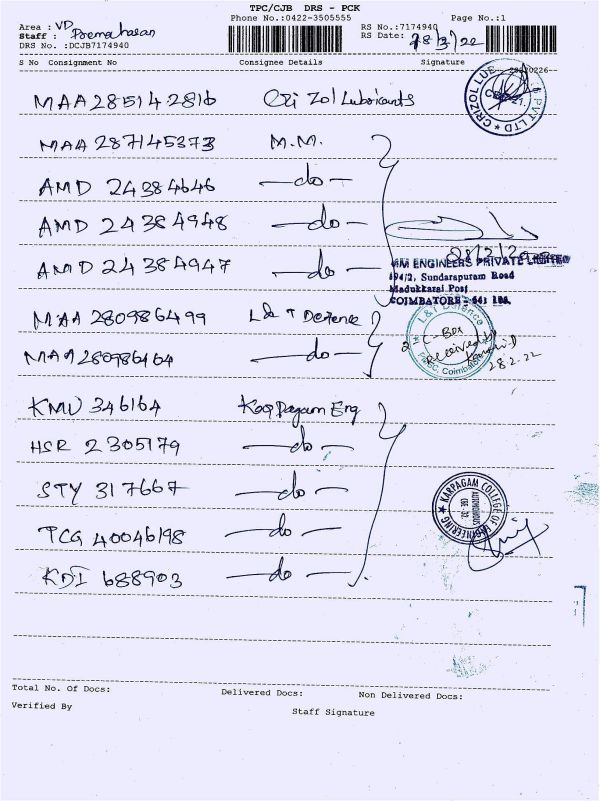 TPC/CJB DRS - PCK
Area : VD Phone No.:0422-3505555 RS No.:7174940 Page No.:1
Staff : RS Date: 28/2/22
DRS No. :DCJB7174940
S No Consignment No Consignee Details Signature
MAA 285142816 Cri Zol Lubricants
CRIZOL LUB PVT LTD
MAA 287145373 M.M.
AMD 24384646 —do—
AMD 24384948 —do—
AMD 24384947 —do—
MM ENGINEERS PRIVATE LIMITED
194/2, Sundarapuram Road
Madukkarai Post
COIMBATORE - 641 105.
MAA 280986499 L& T Defence
MAA 280986464 —do—
L&T Defence
Coimbatore
Received by
28.2.22
KMU 346164 Kaqpagam Eng
HSR 2305179 —do—
STY 317667 —do—
KARPAGAM COLLEGE OF ENGINEERING
AUTONOMOUS
CBE - 32
TCG 40046198 —do—
KDI 688903 —do—
Total No. Of Docs: Delivered Docs: Non Delivered Docs:
Verified By Staff Signature